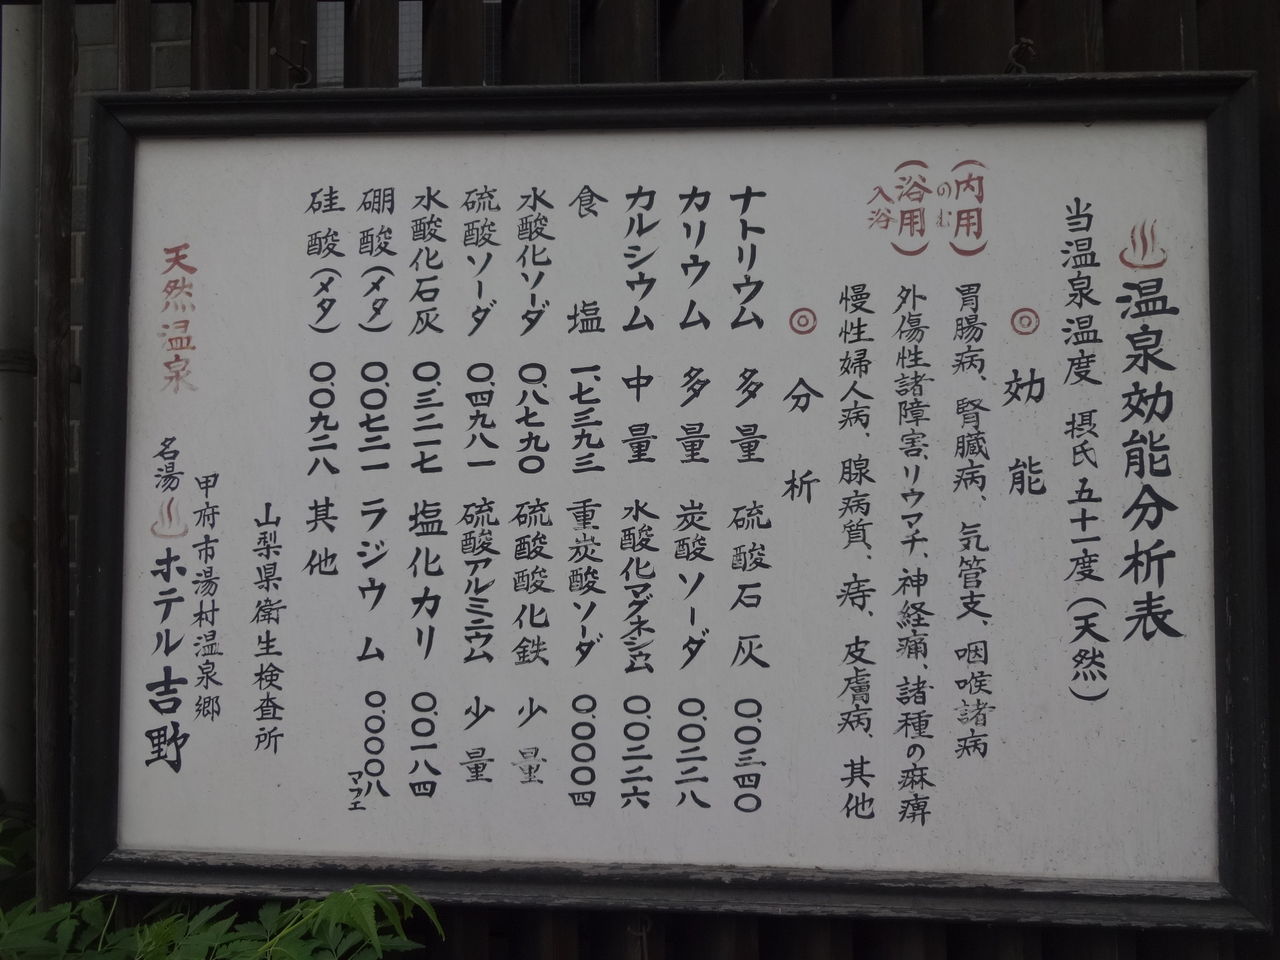 ♨温泉効能分析表
当温泉温度 摂氏五十一度(天然)
◎効能
(内用)胃腸病、腎臓病、気管支、咽喉諸病
のむ
(浴用)外傷性諸障害、リウマチ、神経痛、諸種の麻痺
入浴
慢性婦人病、腺病質、痔、皮膚病、其他
◎分析
ナトリウム 多量 硫酸石灰 〇.〇三四〇
カリウム 多量 炭酸ソーダ 〇.〇二二八
カルシウム 中量 水酸化マグネシウム 〇.〇二二六
食塩 一.七三九三 重炭酸ソーダ 〇.〇〇〇四
水酸化ソーダ 〇.八七九〇 硫酸酸化鉄 少量
硫酸ソーダ 〇.四九八一 硫酸アルミニウム 少量
水酸化石灰 〇.三二一七 塩化カリ 〇.〇一八四
硼酸(メタ) 〇.〇七二一 ラジウム 〇.〇〇〇八
マツエ
硅酸(メタ) 〇.〇九二八 其他
山梨県衛生検査所
甲府市湯村温泉郷
天然温泉 名湯♨ホテル吉野